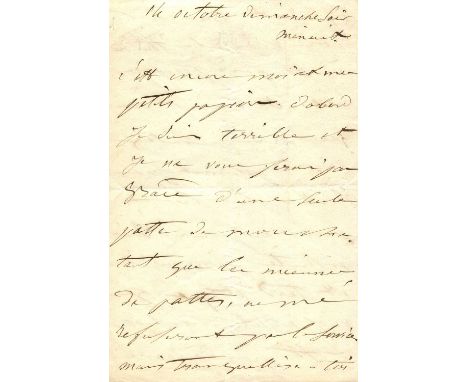 14 octobre dimanche soir
minuit
C'est encore moi et mes
petits papiers. D'abord
je suis terrible et
je ne vous ferai pas
grâce d'une seule
patte de mouche
tant que les miennes
de pattes, ne me
refuseront pas le service
mais tranquillise-toi